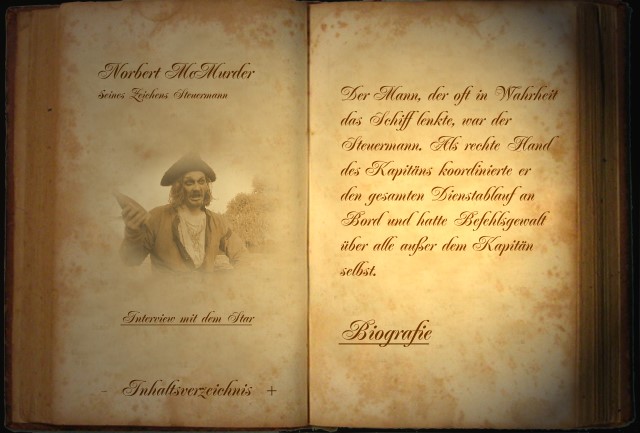 Norbert McMurder
Seines Zeichens Steuermann
Interview mit dem Star
- Inhaltsverzeichnis +
Der Mann, der oft in Wahrheit
das Schiff lenkte, war der
Steuermann. Als rechte Hand
des Kapitäns koordinierte er
den gesamten Dienstablauf an
Bord und hatte Befehlsgewalt
über alle außer dem Kapitän
selbst.
Biografie